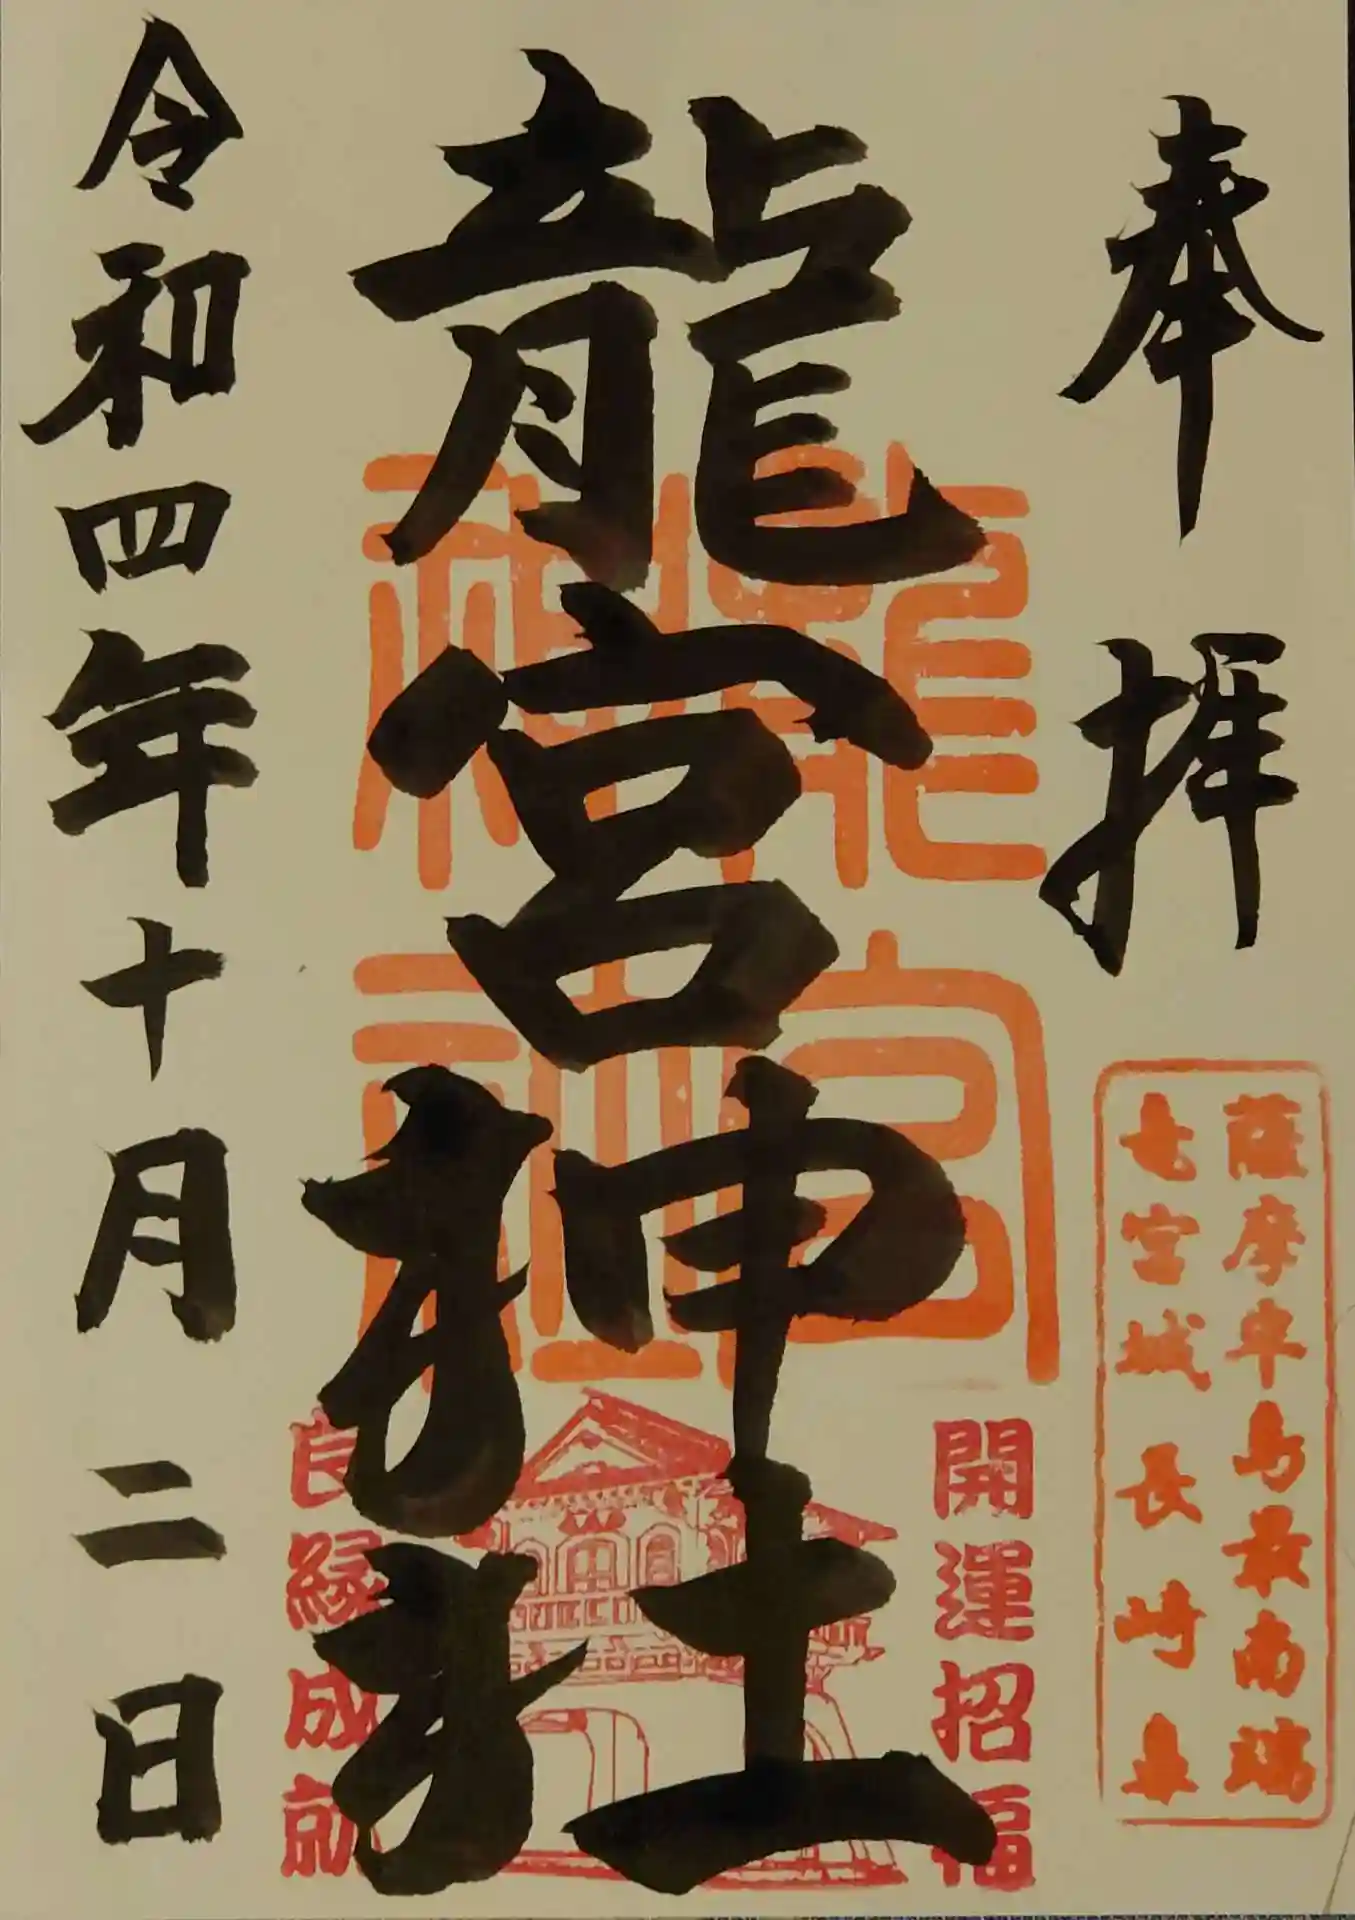 奉拝
薩摩半島最南端
竜宮城長崎鼻
龍宮神社
龍宮
神社
開運招福
良縁成就
令和四年十月二日